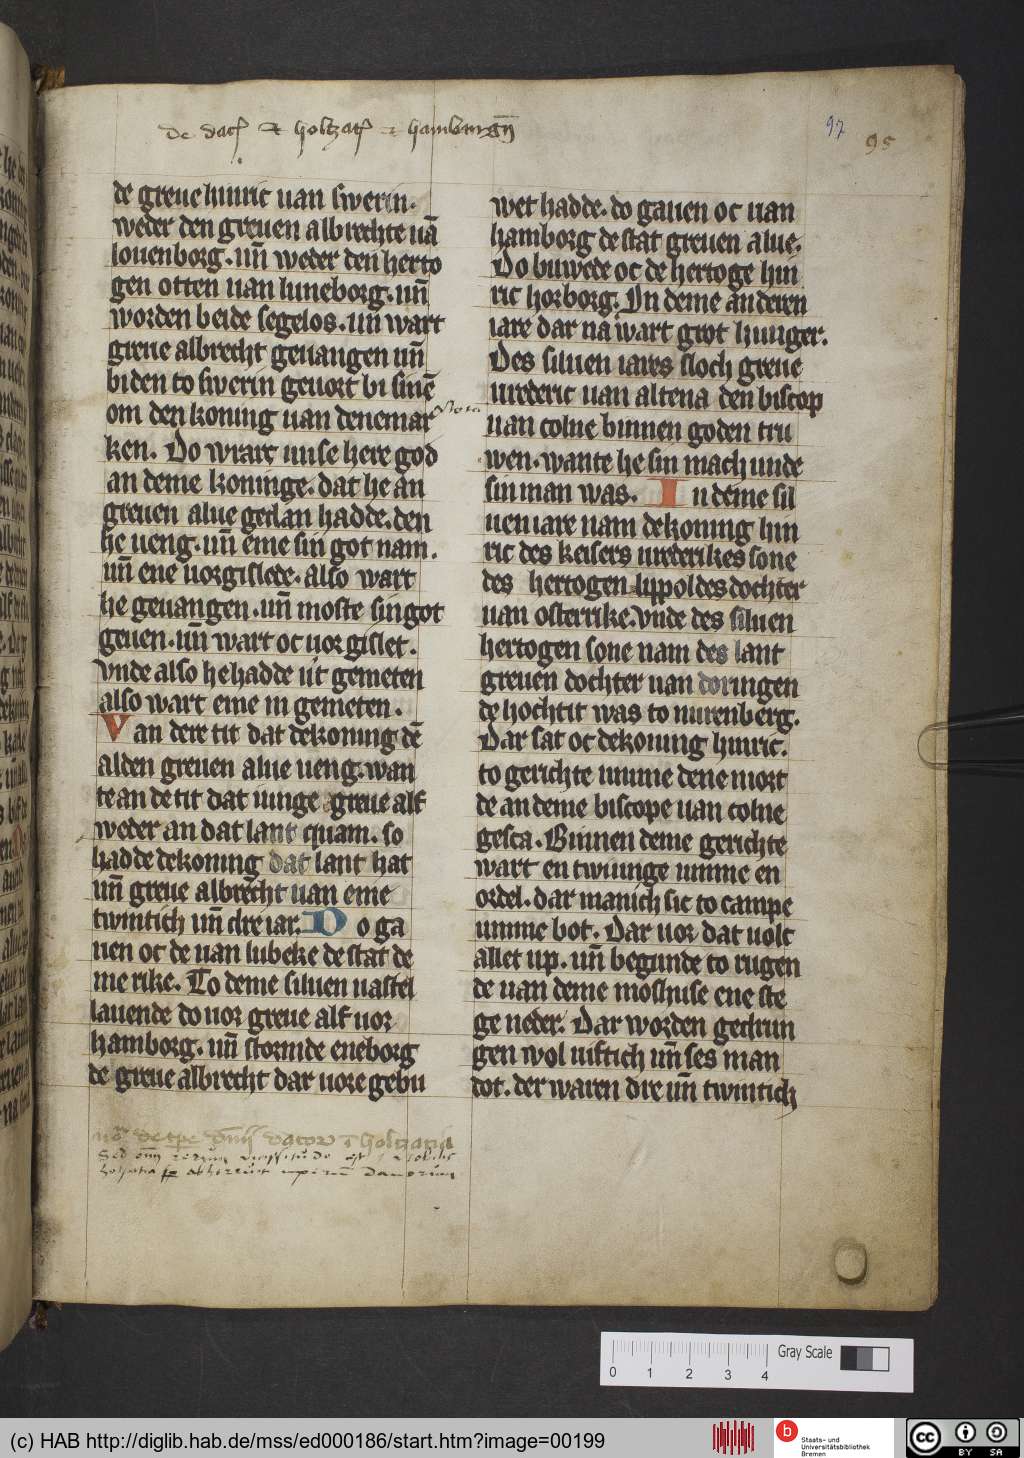 De dac� et holtzac� et hamburgn̄
97
95
de greue hinric uan swerin.
weder den greuen albrechte uā
louenborg. un̄ weder den herto
gen otten uan luneborg. un̄
worden beide segelos. un̄ wart
greue albrecht geuangen un̄
biden to swerin geuort bi sinē
om den koning uan denemar
ken. Do wrarc unse here god
an deme koninge. dat he an
greuen alue gedan hadde. den
he ueng. un̄ eme sin got nam.
un̄ ene uorgislede. also wart
he geuangen. un̄ moste sin got
geuen. un̄ wart oc uor gislet.
Vnde also he hadde ut gemeten
also wart eme in gemeten.
Van dere tit dat de koning dē
alden greuen alue ueng. wan
te an de tit dat iunge greue alf
weder an dat lant quam. so
hadde de koning dat lant hat
un̄ greue albrecht uan eme
twintich un̄ dre iar. Do ga
uen oc de uan lubeke de stat de
me rike. To deme siluen uastel
lauende do uor greue alf uor
hamborg. un̄ stormde eneborg
de greue albrecht dar uore gebu
Nota
wet hadde. do gauen oc uan
hamborg de stat greuen alue.
Do buwede oc de hertoge hin
ric horborg. In deme anderen
iare dar na wart grot hunger.
Des siluen iares sloch greue
urederic uan altena den biscop
uan colne binnen goden tru
wen. wante he sin mach unde
sin man was. In deme sil
uen iare nam de koning hin
ric des keisers urederikes sone
des hertogen lippoldes dochter
uan osterrike. Vnde des siluen
hertogen sone nam des lant
greuen dochter uan doringen
de hochtit was to nurenberg.
Dar sat oc de koning hinric.
to gerichte umme dene mort
de an deme biscope uan colne
gesca. Binnen deme gerichte
wart en twiunge umme en
ordel. dar manich sic to campe
umme bot. Dar uor dat uolc
allet up. un̄ begunde to rugen
de uan deme moshuse ene ste
ge neder. Dar worden gedrun
gen wol uiftich un̄ ses man
dot. der waren dre un̄ twintich
0 1 2 3 4
Gray Scale
(c) HAB http://diglib.hab.de/mss/ed000186/start.htm?image=00199
b
Staats- und
Universitätsbibliothek
Bremen
cc
BY SA